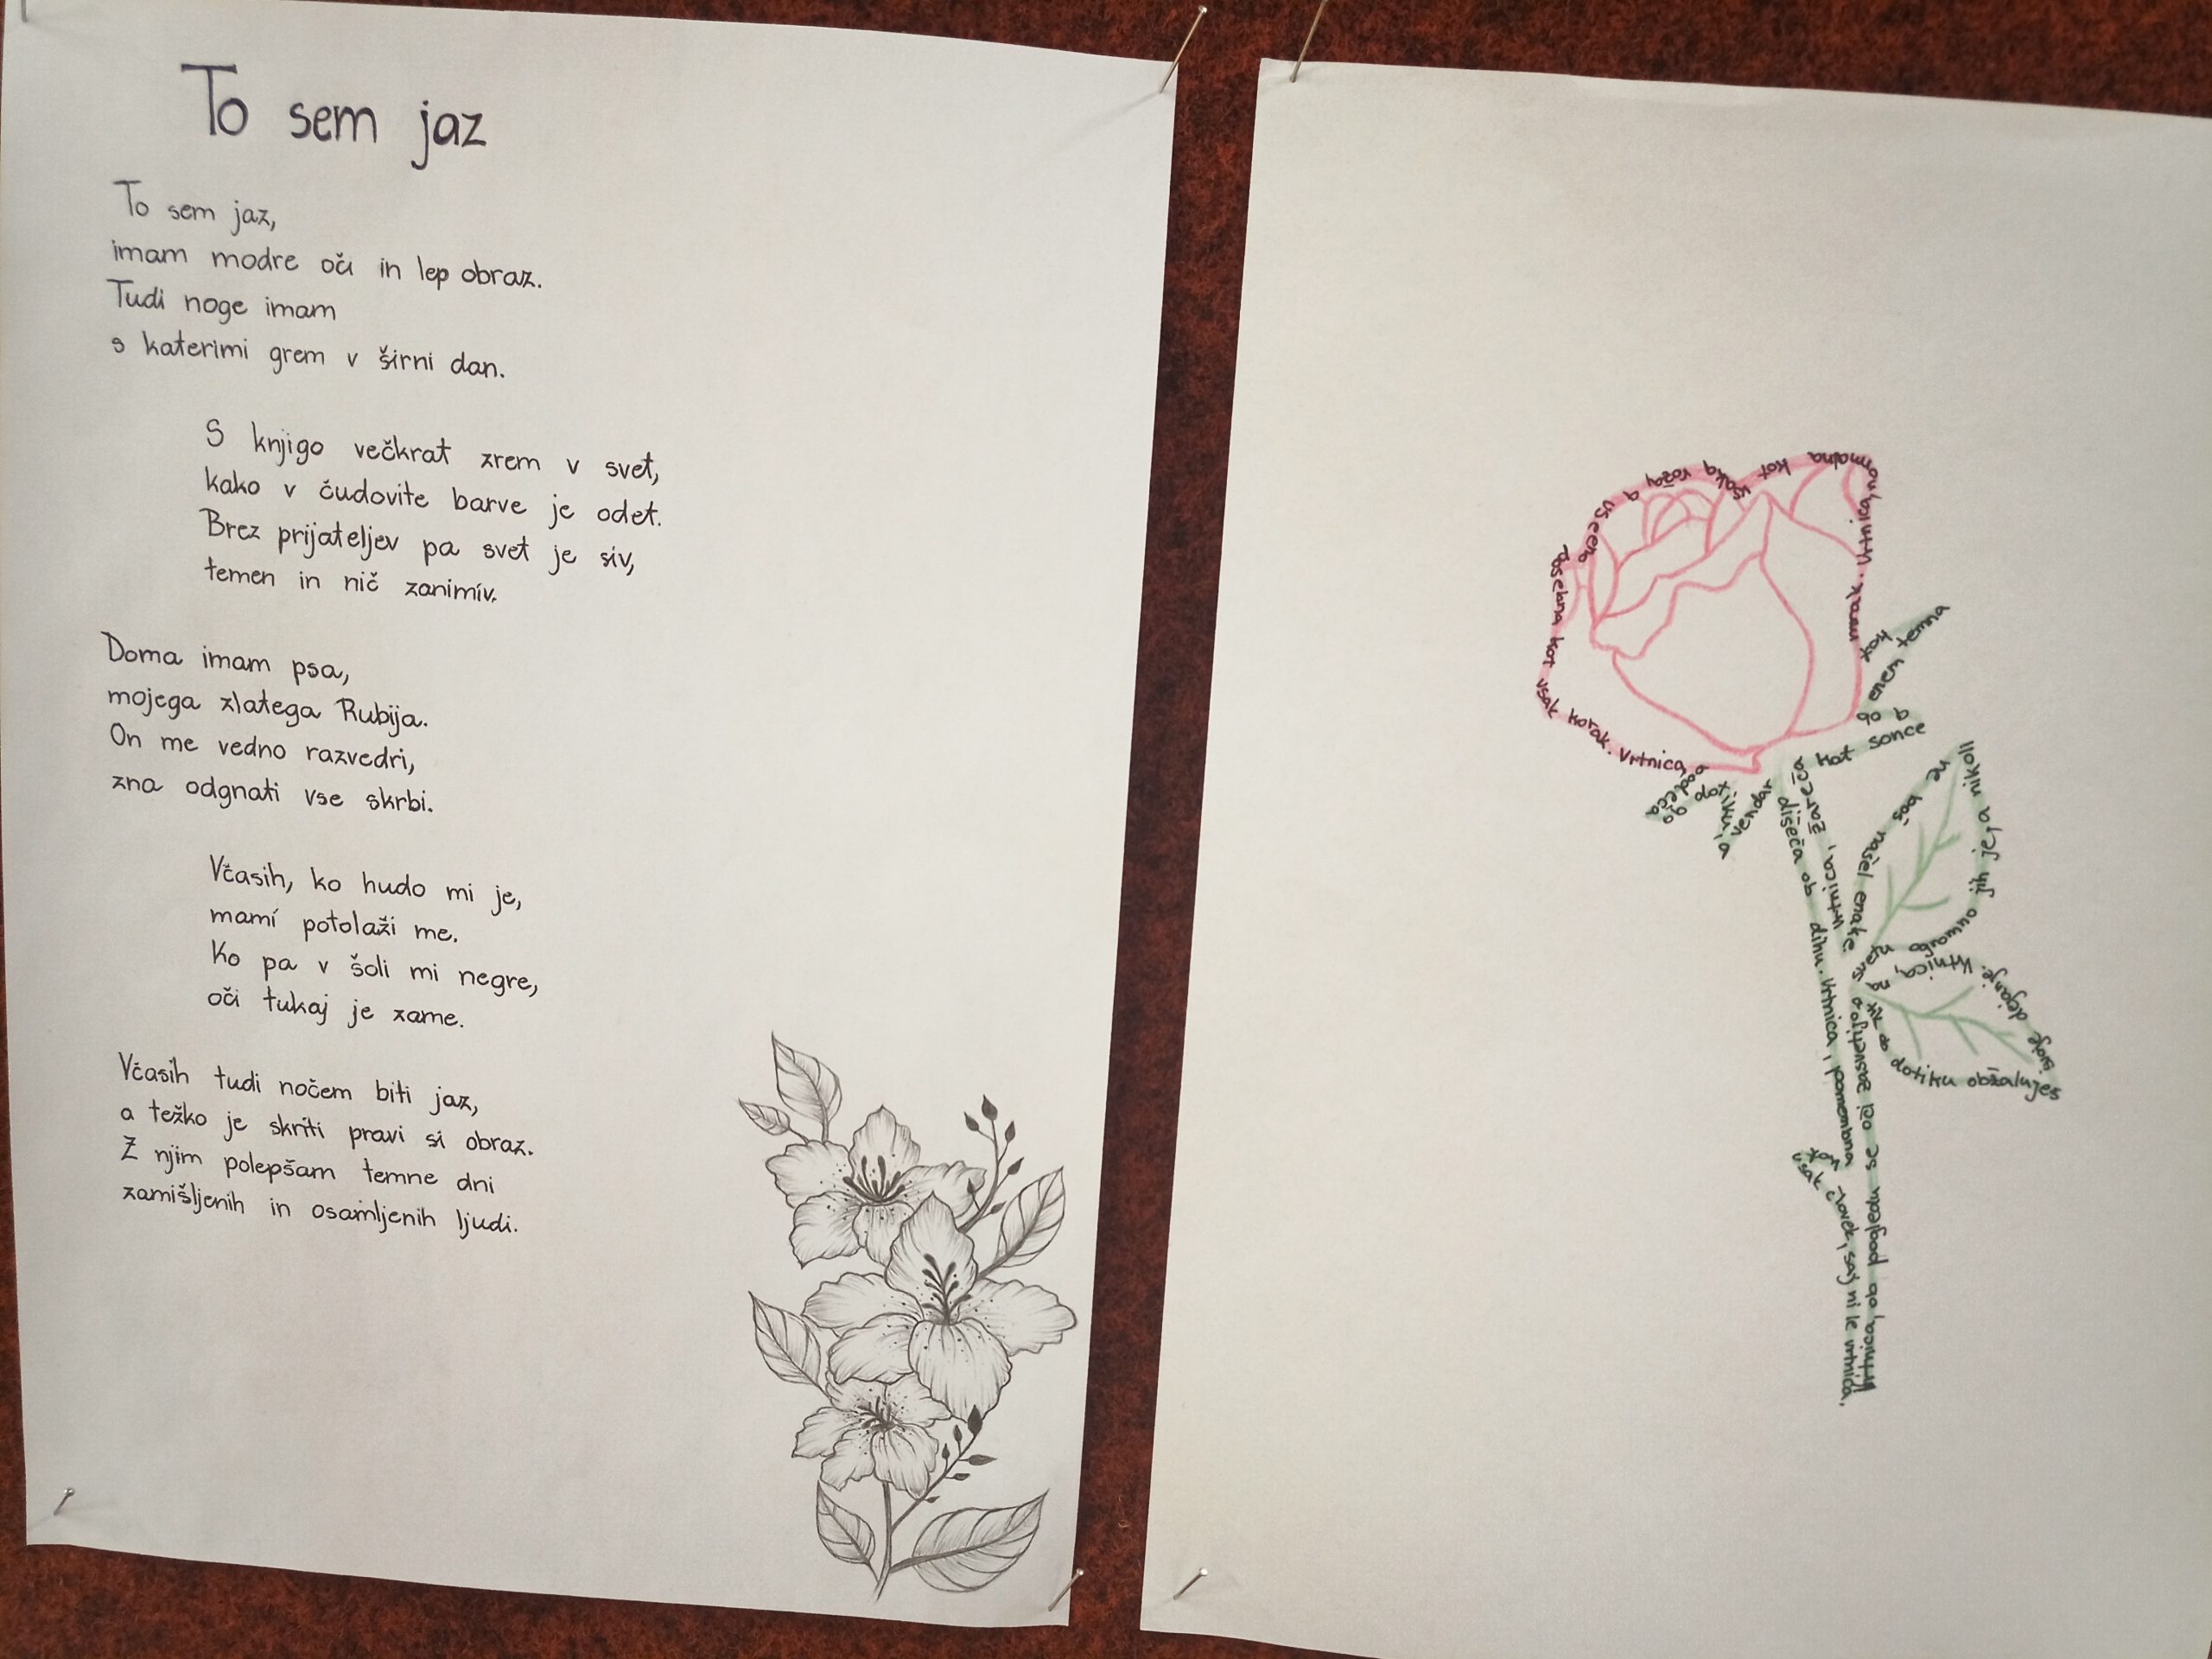 To sem jaz
To sem jaz,
imam modre oči in lep obraz.
Tudi noge imam
s katerimi grem v širni dan.
S knjigo večkrat zrem v svet,
kako v čudovite barve je odet.
Brez prijateljev pa svet je siv,
temen in nič zanimiv.
Doma imam psa,
mojega zlatega Rubija.
On me vedno razvedri,
zna odgnati vse skrbi.
Včasih, ko hudo mi je,
mami potolaži me.
Ko pa v šoli mi negre,
oči tukaj je zame.
Včasih tudi nočem biti jaz,
a težko je skriti pravi si obraz.
Z njim polepšam temne dni
zamišljenih in osamljenih ljudi.
Vrtnica, ob pogledu se oči zasvetijo a
ob dotiku obžaluješ
svoje dejanje. Vrtnica,
na svetu ogromno jih je, a nikoli
ne boš našel enake
Vrtnica, žareča kot sonce
a ob enem temna
kot mrak. Vrtnica, normalna
kot vsaka roža, a vseeno
posebna kot vsak korak. Vrtnica,
vendar dišeča ob dihu. Vrtnica, pomembna
kot vsak človek, saj ni le vrtnica.